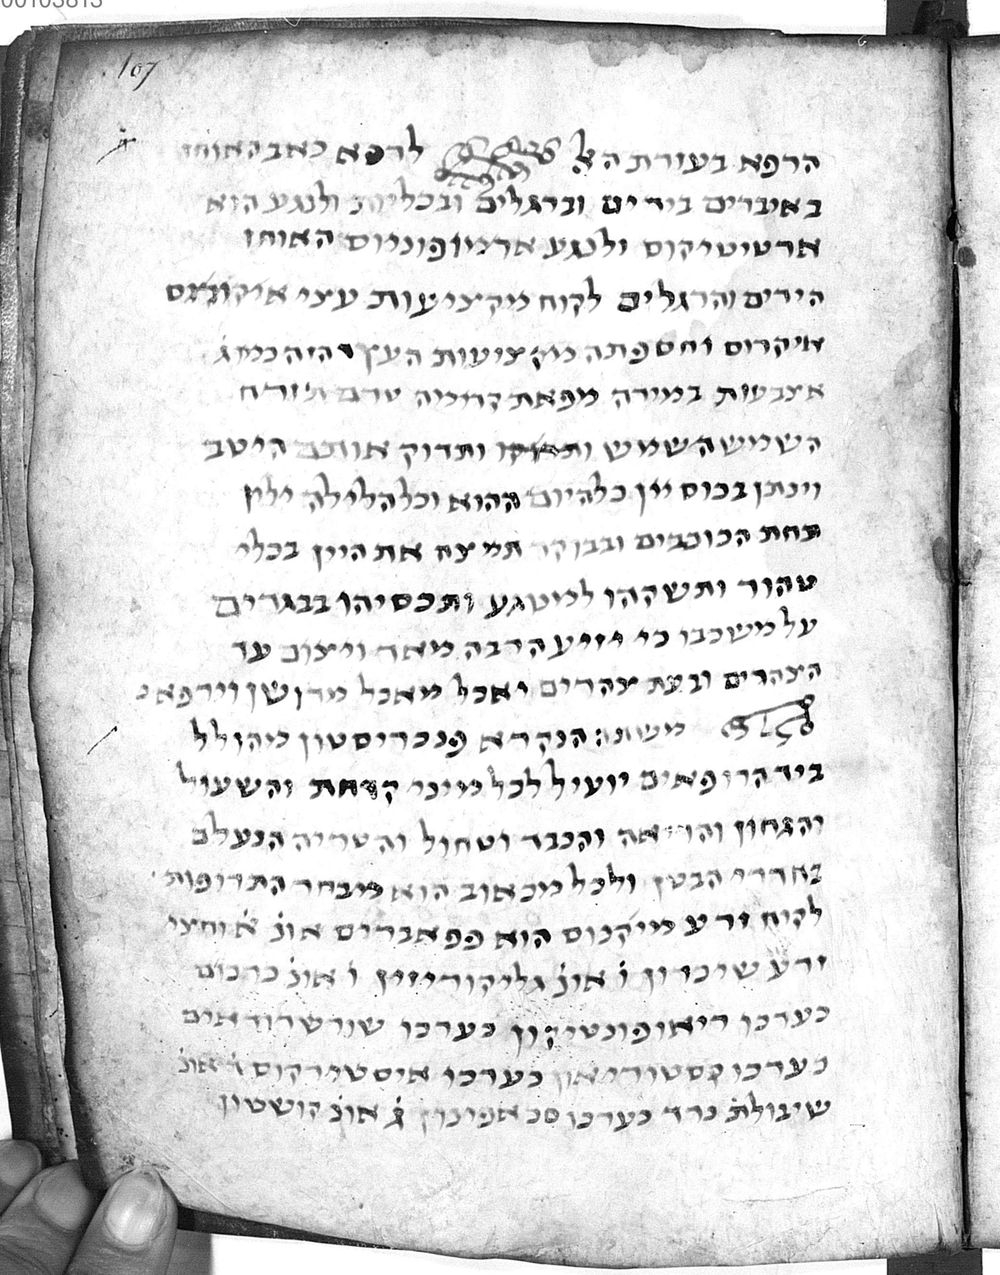 00103813
107
הרפא בעזרת האל לרפא כאב האוחז
באיברים בידים וברגלים ובכליות ולנגע הוא
ארטיטיקוס ולנגע ארמופוניוס האוחז
הידים והרגלים לקוח מקציעות עצי
וחספתה מקציעות העץ הזה כמו ג
אצבעות במידה מפאת קדימה טרם תזרח
השמש ותדוק אותם היטב
וינתן בכוס יין כל היום ההוא וכל הלילה ילין
תחת הכוכבים ובבוקר תמצא את היין בכלי
טהור ותשקהו למנוגע ותכסיהו בבגדים
על משכבו כי יזיע הרבה מאד ויצום עד
הצהרים ובעת צהרים יאכל מאכל מדן שן וירפא
משונה הנקרא פנכריסטון מהולל
ביד הרופאים יועיל לכל מיני קדחת והשעול
והגחון והריאה והכבד וטחול והטריה הנעלם
בחדרי הבטן ולכל מכאוב הוא מבחר התרופות
לקוח זרע מיקנוס הוא פפאברים אונ' א' וחצי
זרע שיכרון ו' אונ' גליקוריזין ו' אונ' כרכום
כערכו ריאופונטיקון כערכו שורש דודאים
כערכו קסטוריאון כערכו איסטירקוס אונ'
שיבולת נרד כערכו סכאפינון ג' אונ' קושטון